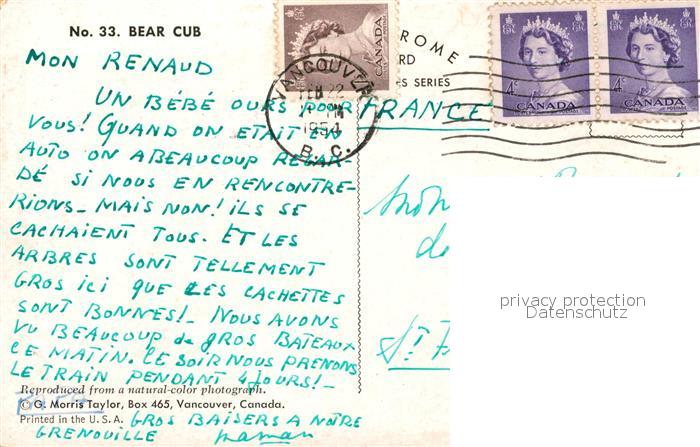 No. 33. BEAR CUB
MON RENAUD
UN BÉBÉ OURS POUR
VOUS! QUAND ON ETAIT EN
AUTO ON A BEAUCOUP REGAR-
DÉ SI NOUS EN RENCONTRE-
RIONS_ MAIS NON! ILS SE
CACHAIENT TOUS. ET LES
ARBRES SONT TELLEMENT
GROS ICI QUE LES CACHETTES
SONT BONNES!_ NOUS AVONS
VU BEAUCOUP de GROS BATEAUX
CE MATIN. CE SOIR NOUS PRENONS
LE TRAIN PENDANT 4 JOURS!_
Reproduced from a natural-color photograph.
© G. Morris Taylor, Box 465, Vancouver, Canada.
Printed in the U. S. A.
GROS BAISERS A NOTRE
GRENOUILLE maman
CANADA
VANCOUVER
FEB 22
PM
B. C.
ROME
RD
S SERIES
4¢ CANADA
4¢ CANADA
FRANCE
de
St
privacy protection
Datenschutz